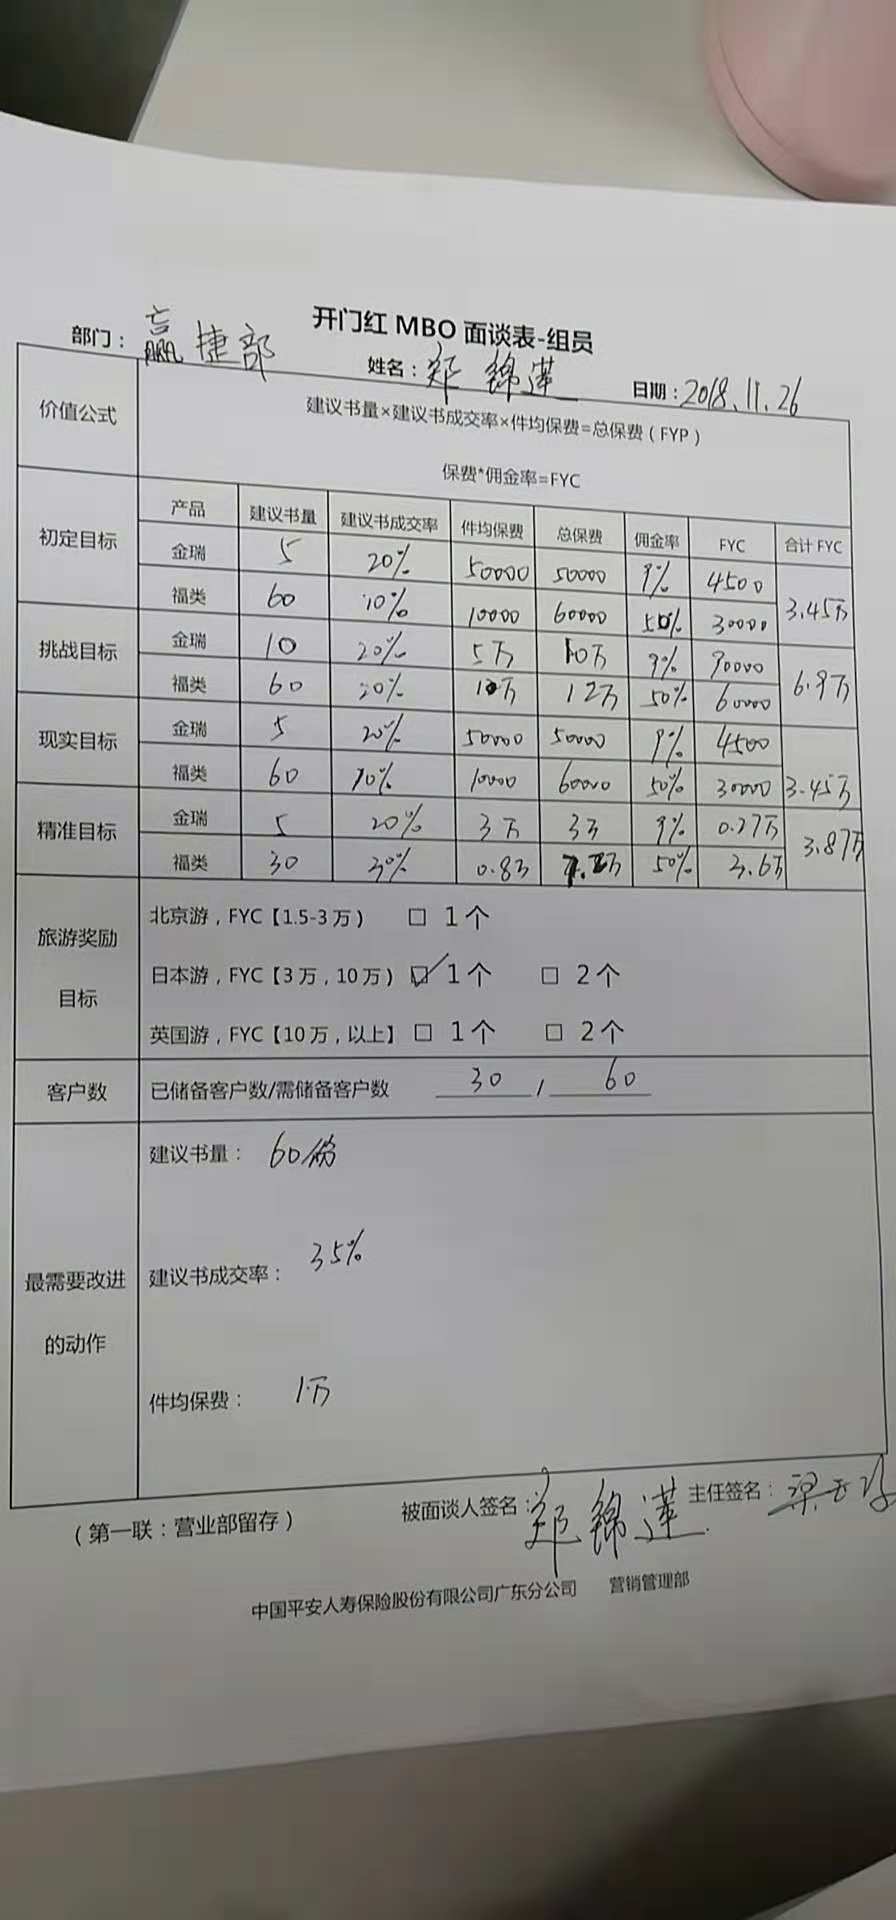 开门红 MBO 面谈表-组员
部门：赢捷部 姓名：郑锦莲 日期：2018.11.26
价值公式 建议书量×建议书成交率×件均保费=总保费（FYP）
保费*佣金率=FYC
产品 建议书量 建议书成交率 件均保费 总保费 佣金率 FYC 合计 FYC
初定目标 金瑞 5 20% 50000 50000 9% 4500 3.45万
福类 60 10% 10000 60000 50% 30000
挑战目标 金瑞 10 20% 5万 10万 9% 90000 6.9万
福类 60 20% 1万 12万 50% 60000
现实目标 金瑞 5 20% 50000 50000 9% 4500 3.45万
福类 60 10% 10000 60000 50% 30000
精准目标 金瑞 5 20% 3万 3万 9% 0.27万 3.87万
福类 30 30% 0.8万 7.2万 50% 3.6万
旅游奖励
目标
北京游，FYC【1.5-3 万） □ 1个
日本游，FYC【3 万，10 万） ☑ 1个 □ 2个
英国游，FYC【10 万，以上】 □ 1个 □ 2个
客户数 已储备客户数/需储备客户数 30 / 60
最需要改进
的动作
建议书量： 60份
建议书成交率： 35%
件均保费： 1万
（第一联：营业部留存） 被面谈人签名：郑锦莲 主任签名：梁
中国平安人寿保险股份有限公司广东分公司 营销管理部